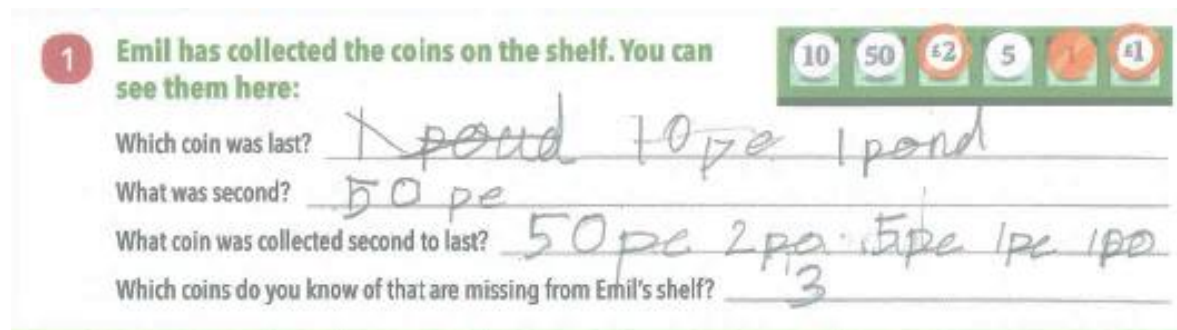 1 Emil has collected the coins on the shelf. You can
see them here:
10 50 £2 5 1 £1
Which coin was last? 1 poud 10 pe 1 pond
What was second? 50 pe
What coin was collected second to last? 50 pe 2 po 5 pe 1 pe 1 po
Which coins do you know of that are missing from Emil's shelf? 3